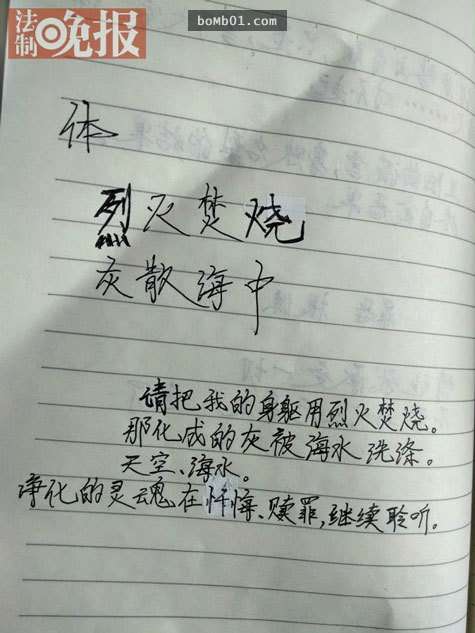 法制晚报
bomb01.com
体
烈火焚烧
灰散海中
请把我的身躯用烈火焚烧。
那化成的灰被海水洗涤。
天空、海水。
净化的灵魂在忏悔、赎罪,继续聆听。